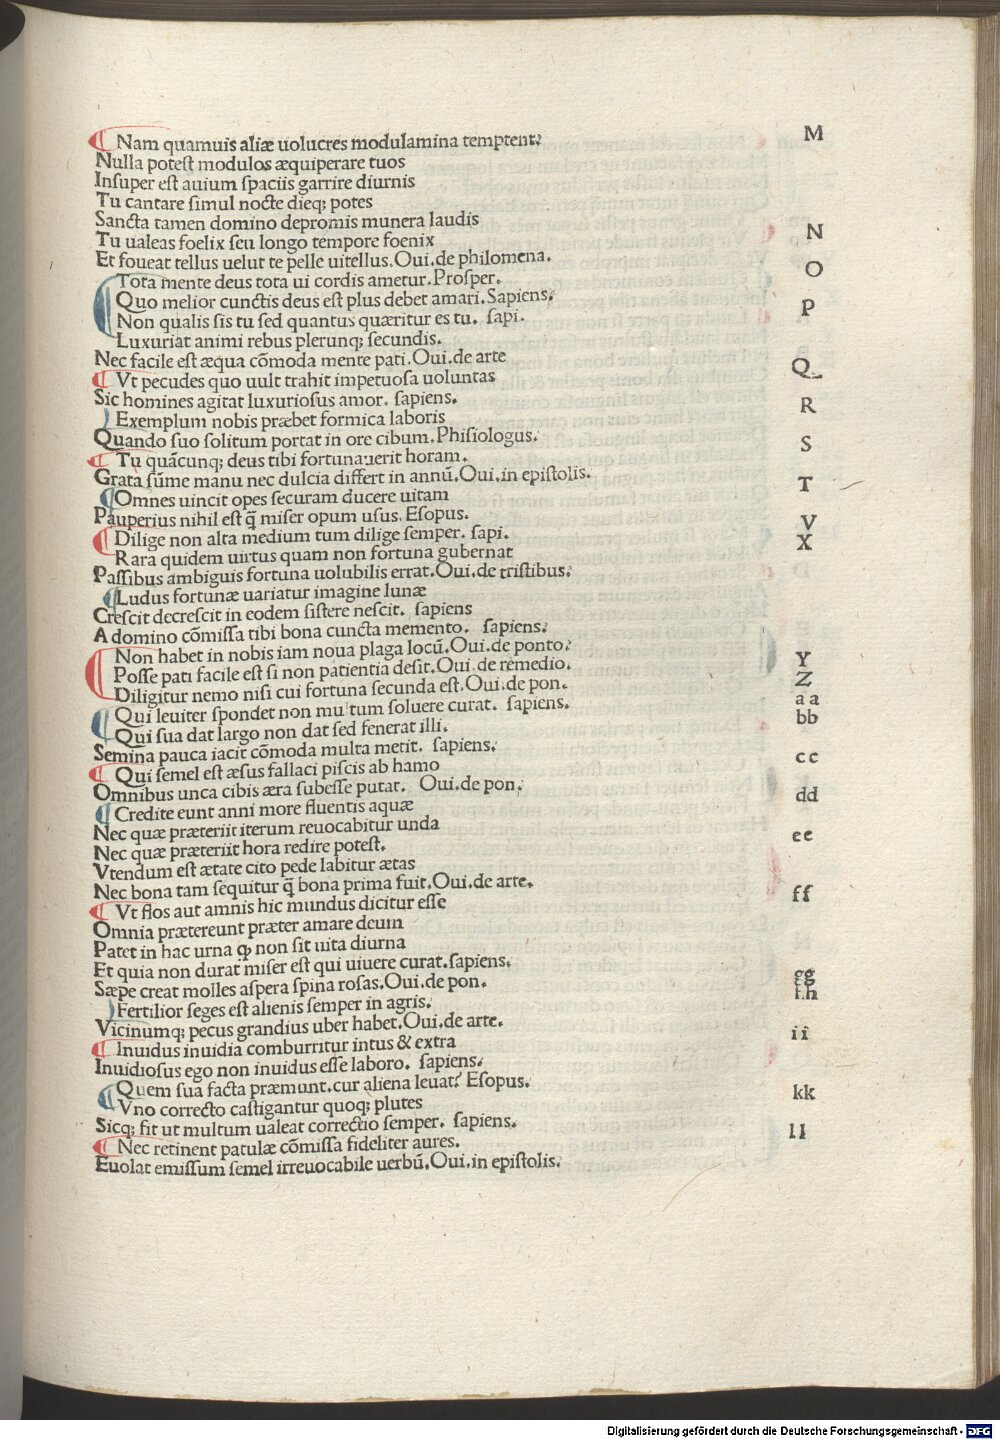 Nam quamuis aliæ uolucres modulamina temptent: M
Nulla poteſt modulos æquiperare tuos
Inſuper eſt auium ſpaciis garrire diurnis
Tu cantare ſimul nocte dieq; potes
Sancta tamen domino depromis munera laudis
Tu ualeas foelix ſeu longo tempore foenix N
Et foueat tellus uelut te pelle uitellus.Oui.de philomena.
Tota mente deus tota ui cordis ametur.Proſper. O
Quo melior cunctis deus eſt plus debet amari.Sapiens.
Non qualis ſis tu ſed quantus quæritur es tu. ſapi. P
Luxuriat animi rebus plerunq; ſecundis.
Nec facile eſt æqua cõmoda mente pati.Oui.de arte
Vt pecudes quo uult trahit impetuoſa uoluntas Q
Sic homines agitat luxurioſus amor. ſapiens.
Exemplum nobis præbet formica laboris R
Quando ſuo ſolitum portat in ore cibum.Phiſiologus.
Tu quãcunq; deus tibi fortunauerit horam. S
Grata ſũme manu nec dulcia differt in annũ.Oui.in epiſtolis.
Omnes uincit opes ſecuram ducere uitam T
Pauperius nihil eſt q̃ miſer opum uſus.Eſopus.
Dilige non alta medium tum dilige ſemper. ſapi. V
Rara quidem uirtus quam non fortuna gubernat X
Paſſibus ambiguis fortuna uolubilis errat.Oui.de triſtibus.
Ludus fortunæ uariatur imagine lunæ
Creſcit decreſcit in eodem ſiſtere neſcit. ſapiens
A domino cõmiſſa tibi bona cuncta memento. ſapiens.
Non habet in nobis iam noua plaga locũ.Oui.de ponto. Y
Poſſe pati facile eſt ſi non patientia deſit.Oui.de remedio. Z
Diligitur nemo niſi cui fortuna ſecunda eſt.Oui.de pon. aa
Qui leuiter ſpondet non multum ſoluere curat. ſapiens. bb
Qui ſua dat largo non dat ſed fenerat illi.
Semina pauca iacit cõmoda multa metit. ſapiens.
Qui ſemel eſt æſus fallaci piſcis ab hamo cc
Omnibus unca cibis æra ſubeſſe putat. Oui.de pon.
Credite eunt anni more fluentis aquæ dd
Nec quæ præteriit iterum reuocabitur unda
Nec quæ præteriit hora redire poteſt. ee
Vtendum eſt ætate cito pede labitur ætas
Nec bona tam ſequitur q̃ bona prima fuit.Oui.de arte.
Vt flos aut amnis hic mundus dicitur eſſe ff
Omnia prætereunt præter amare deum
Patet in hac urna ꝙ non ſit uita diurna
Et quia non durat miſer eſt qui uiuere curat.ſapiens.
Sæpe creat molles aſpera ſpina roſas.Oui.de pon. gg
Fertilior ſeges eſt alienis ſemper in agris. hh
Vicinumq; pecus grandius uber habet.Oui.de arte.
Inuidus inuidia comburritur intus & extra ii
Inuidioſus ego non inuidus eſſe laboro. ſapiens.
Quem ſua facta præmunt.cur aliena leuat? Eſopus.
Vno correcto caſtigantur quoq; plutes kk
Sicq; fit ut multum ualeat correctio ſemper. ſapiens.
Nec retinent patulæ cõmiſſa fideliter aures. ll
Euolat emiſſum ſemel irreuocabile uerbũ.Oui.in epiſtolis.
Digitalisierung gefördert durch die Deutsche Forschungsgemeinschaft - DFG